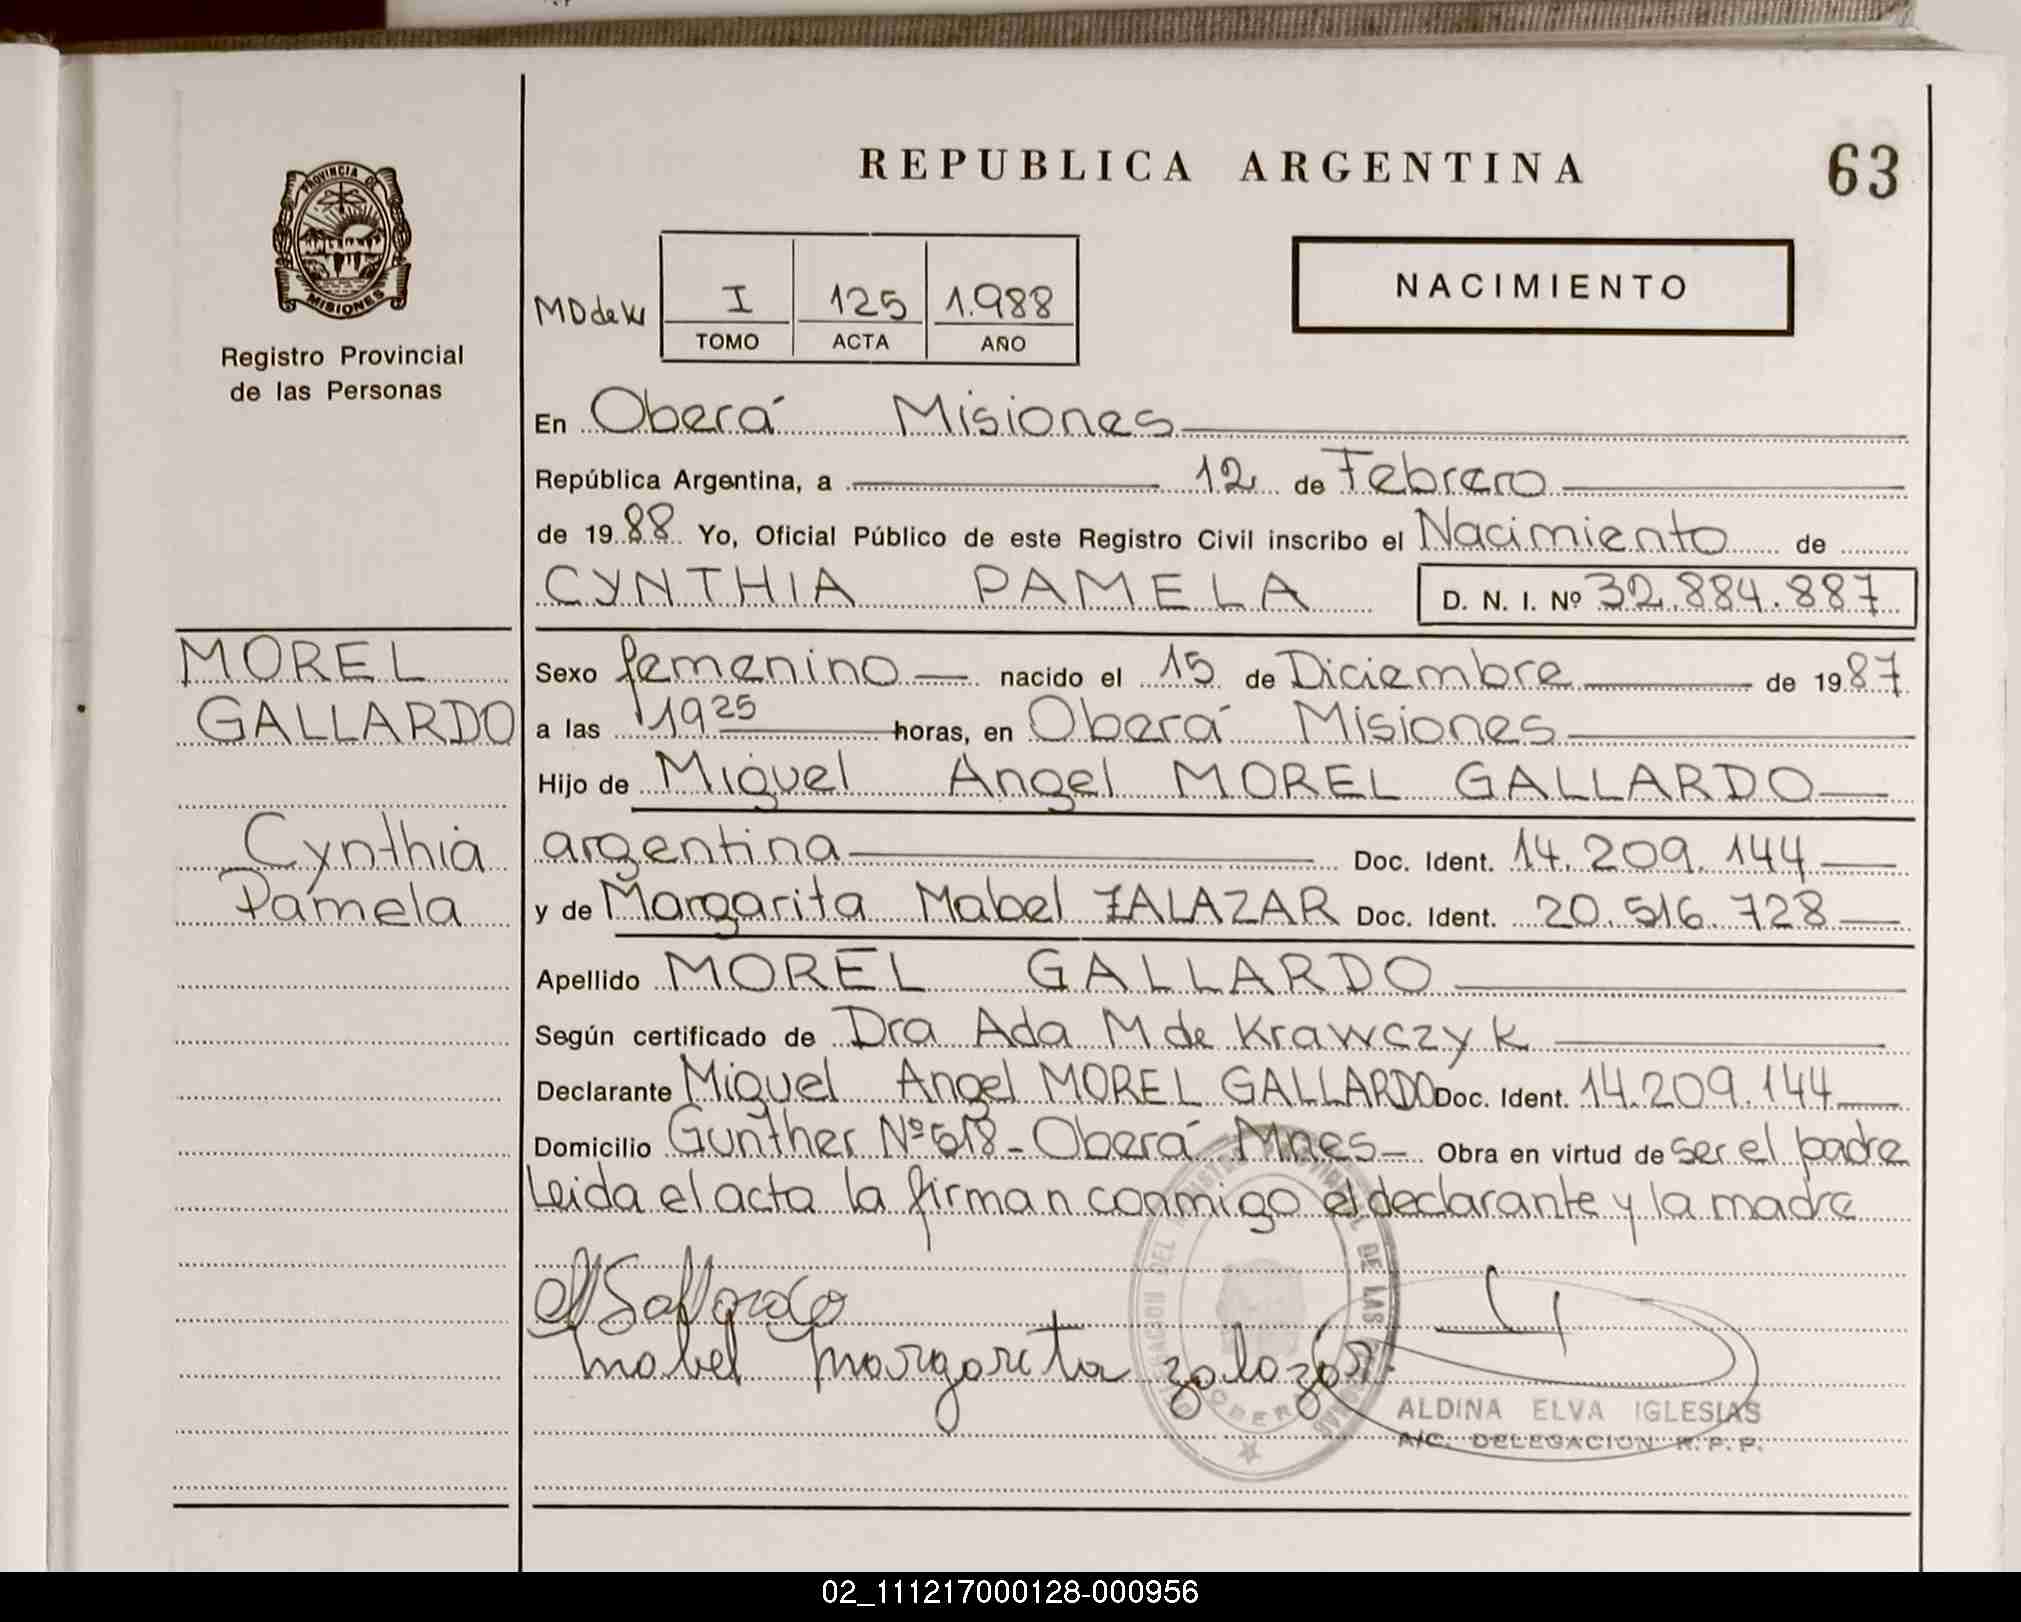 REPUBLICA ARGENTINA
63
PROVINCIA DE
MISIONES
Registro Provincial
de las Personas
NACIMIENTO
MD de K
I 125 1.988
TOMO ACTA AÑO
En Oberá Misiones
República Argentina, a 12 de Febrero
de 1988 Yo, Oficial Público de este Registro Civil inscribo el Nacimiento de
CYNTHIA PAMELA D. N. I. Nº 32.884.887
MOREL
GALLARDO
Cynthia
Pamela
Sexo femenino nacido el 15 de Diciembre de 1987
a las 19 25 horas, en Oberá Misiones
Hijo de Miguel Angel MOREL GALLARDO
argentina Doc. Ident. 14.209.144
y de Margarita Mabel ZALAZAR Doc. Ident. 20.516.728
Apellido MOREL GALLARDO
Según certificado de Dra Ada M de Krawczyk
Declarante Miguel Angel MOREL GALLARDO Doc. Ident. 14.209.144
Domicilio Gunther Nº 618 - Oberá Mnes - Obra en virtud de ser el padre
Leida el acta la firman conmigo el declarante y la madre
Mabel Margarita Zalazar.
ALDINA ELVA IGLESIAS
A/C. DELEGACION R. P. P.
02_111217000128-000956